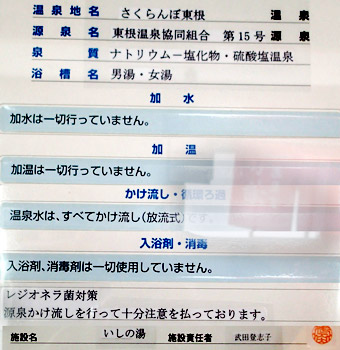 温泉地名 さくらんぼ東根 温泉
源泉名 東根温泉協同組合 第15号 源泉
泉質 ナトリウム－塩化物・硫酸塩温泉
浴槽名 男湯・女湯
加水
加水は一切行っていません。
加温
加温は一切行っていません。
かけ流し・循環ろ過
温泉水は、すべてかけ流し(放流式)です。
入浴剤・消毒
入浴剤、消毒剤は一切使用していません。
レジオネラ菌対策
源泉かけ流しを行って十分注意を払っております。
施設名 いしの湯 施設責任者 武田登志子